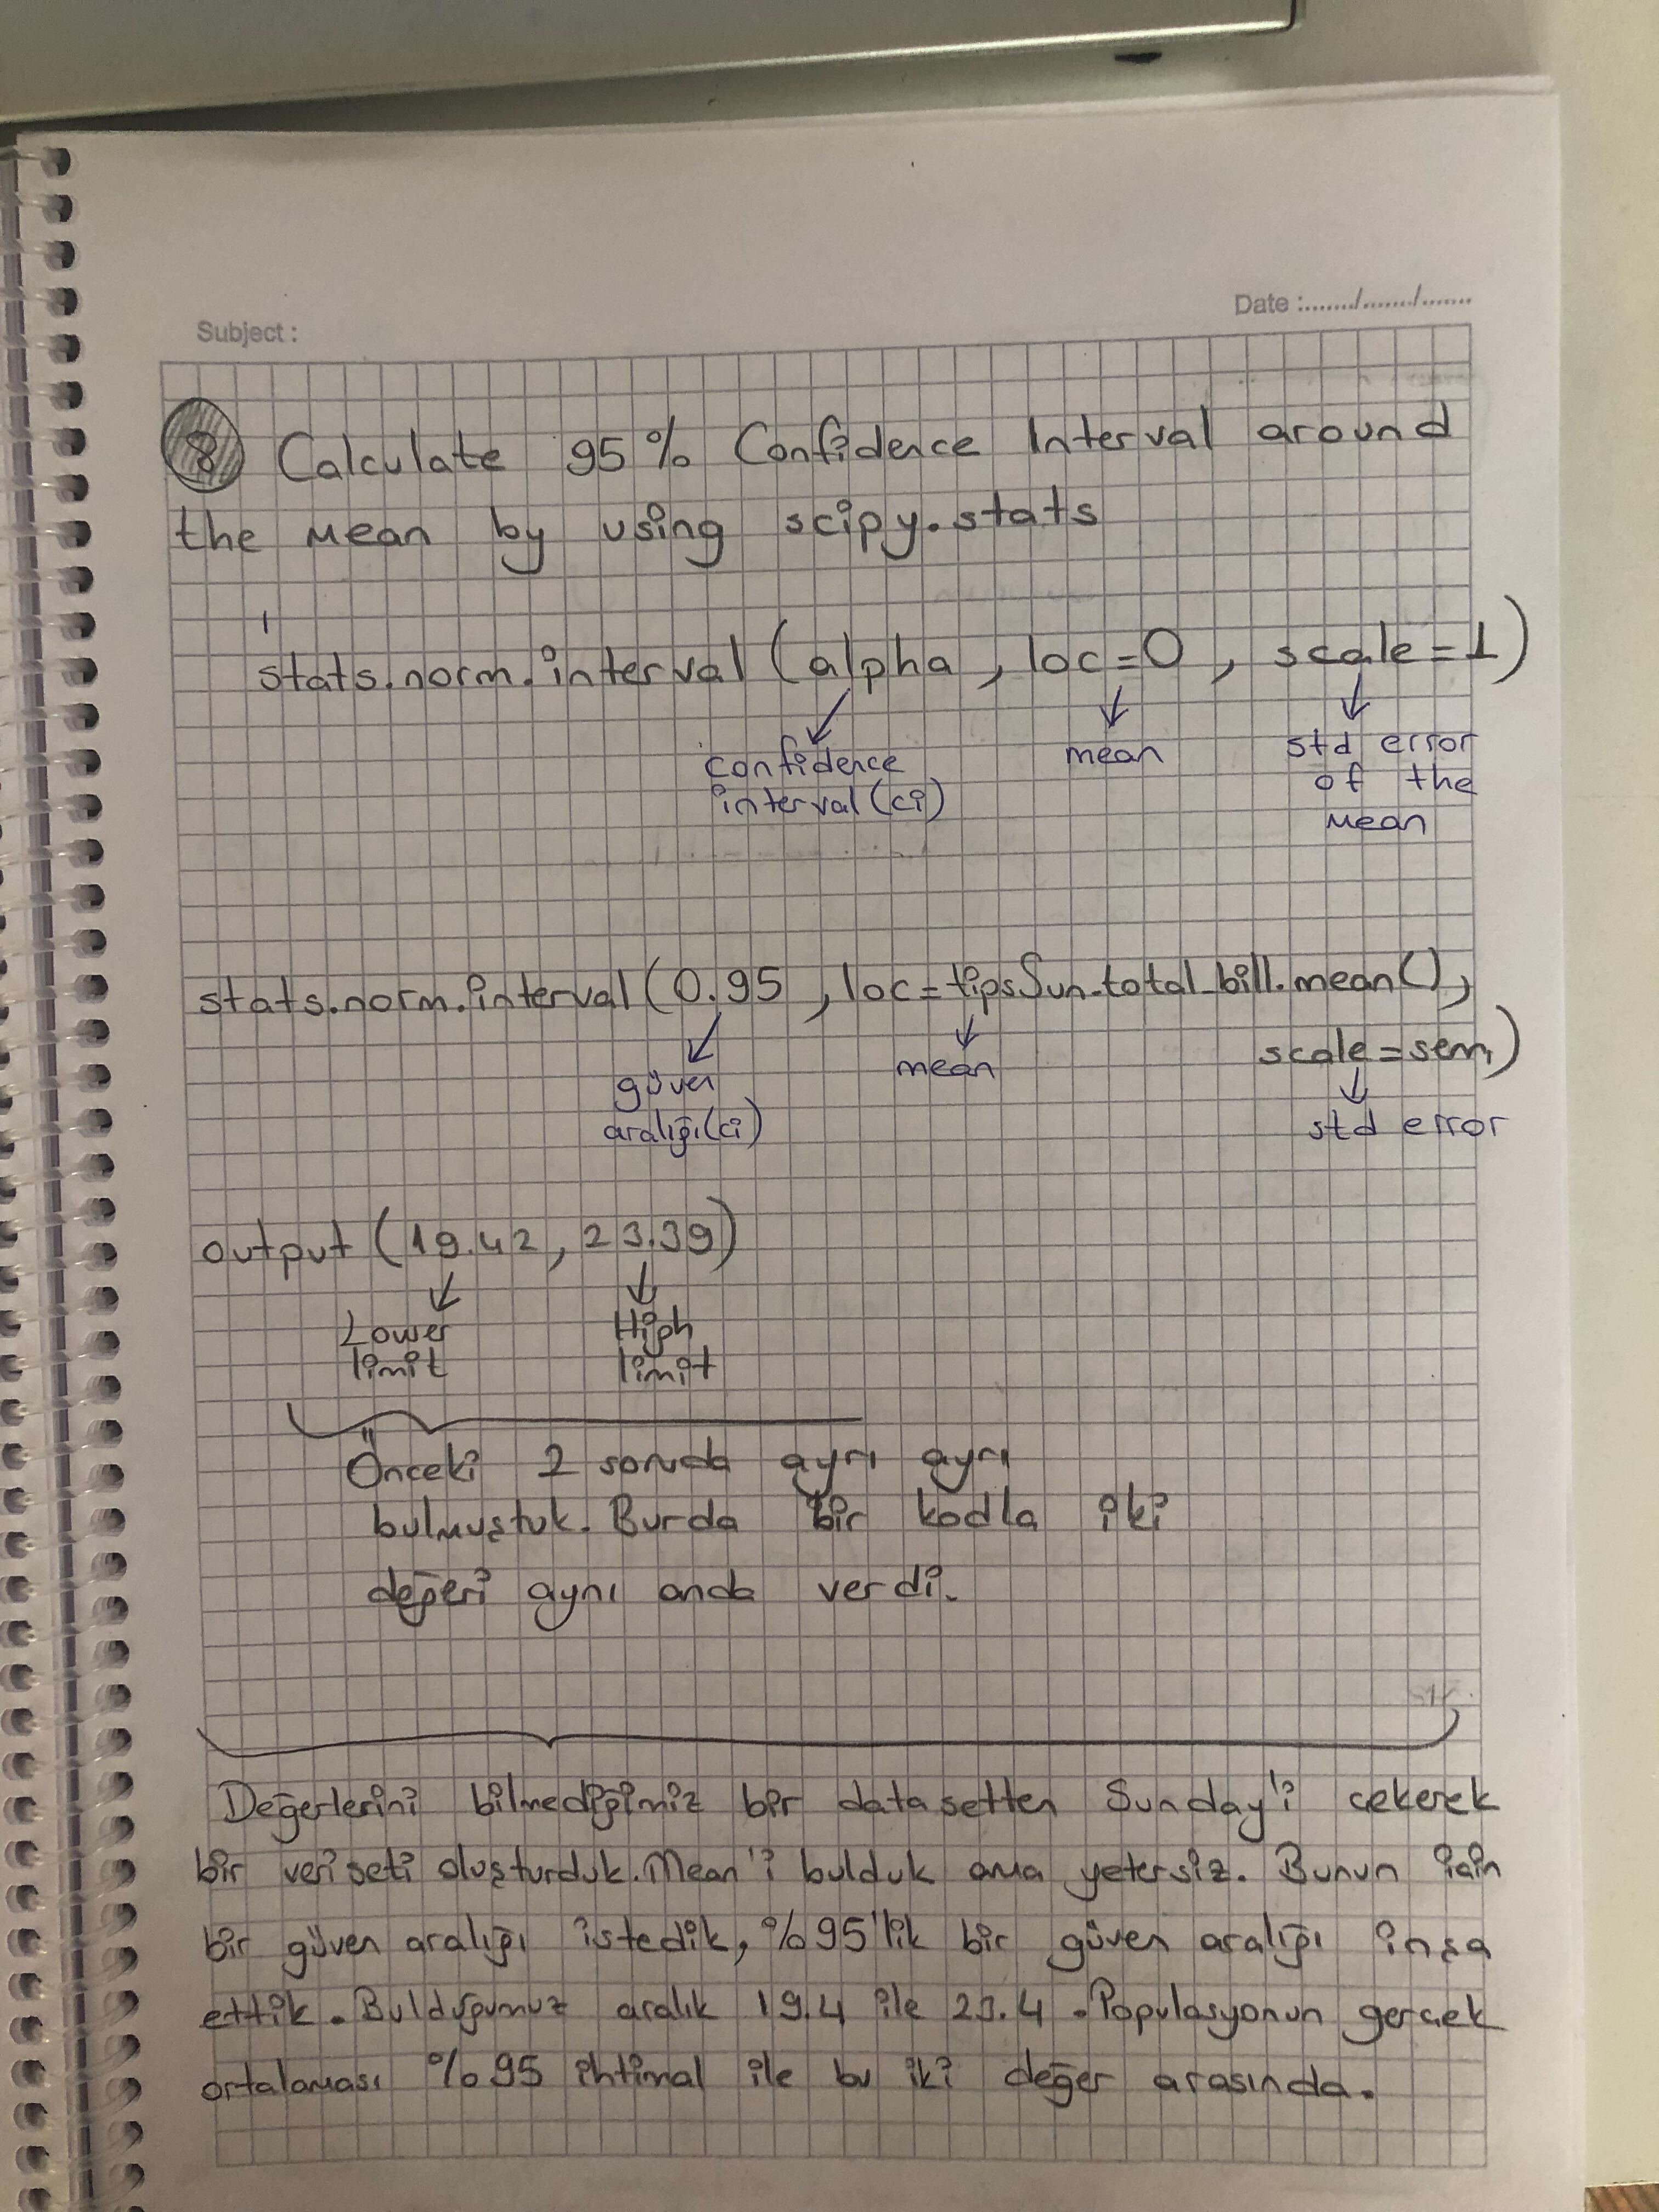 Date :......./......./.......
Subject :
8 Calculate 95% Confidence Interval around
the mean by using scipy.stats
stats.norm.interval (alpha, loc=0, scale=1)
confidence
interval (ci)
mean
std error
of the
mean
stats.norm.interval(0.95, loc=tipsSun.total_bill.mean(),
scale=sem)
güven
aralığı(ci)
mean
std error
output (19.42, 23.39)
Lower
limit
High
limit
Önceki 2 soruda ayrı ayrı
bulmuştuk. Burda bir kodla iki
değeri aynı anda verdi.
Değerlerini bilmediğimiz bir datasetten Sunday'i çekerek
bir veri seti oluşturduk. Mean'i bulduk ama yetersiz. Bunun için
bir güven aralığı istedik, %95'lik bir güven aralığı inşa
ettik. Bulduğumuz aralık 19.4 ile 23.4. Populasyonun gerçek
ortalaması %95 ihtimal ile bu iki değer arasında.